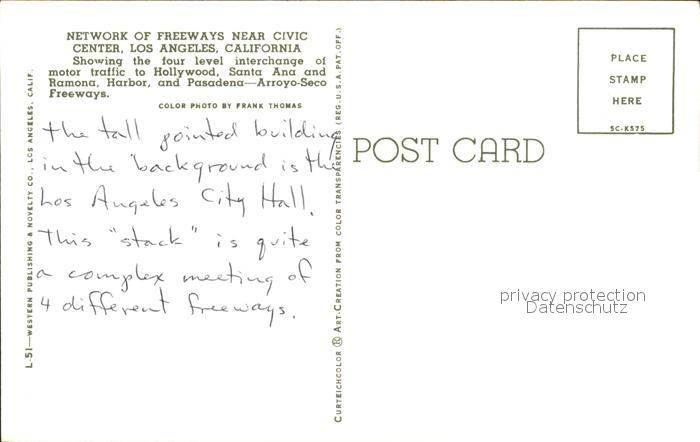 NETWORK OF FREEWAYS NEAR CIVIC
CENTER, LOS ANGELES, CALIFORNIA
Showing the four level interchange of
motor traffic to Hollywood, Santa Ana and
Ramona, Harbor, and Pasadena—Arroyo-Seco
Freeways.
COLOR PHOTO BY FRANK THOMAS
the tall pointed building
in the background is the
Los Angeles City Hall.
This "stack" is quite
a complex meeting of
4 different freeways.
L-51—WESTERN PUBLISHING & NOVELTY CO., LOS ANGELES, CALIF.
CURTEICHCOLOR ® ART-CREATION FROM COLOR TRANSPARENCIES (REG. U.S.A. PAT. OFF.)
POST CARD
PLACE
STAMP
HERE
5C-K575
privacy protection
Datenschutz